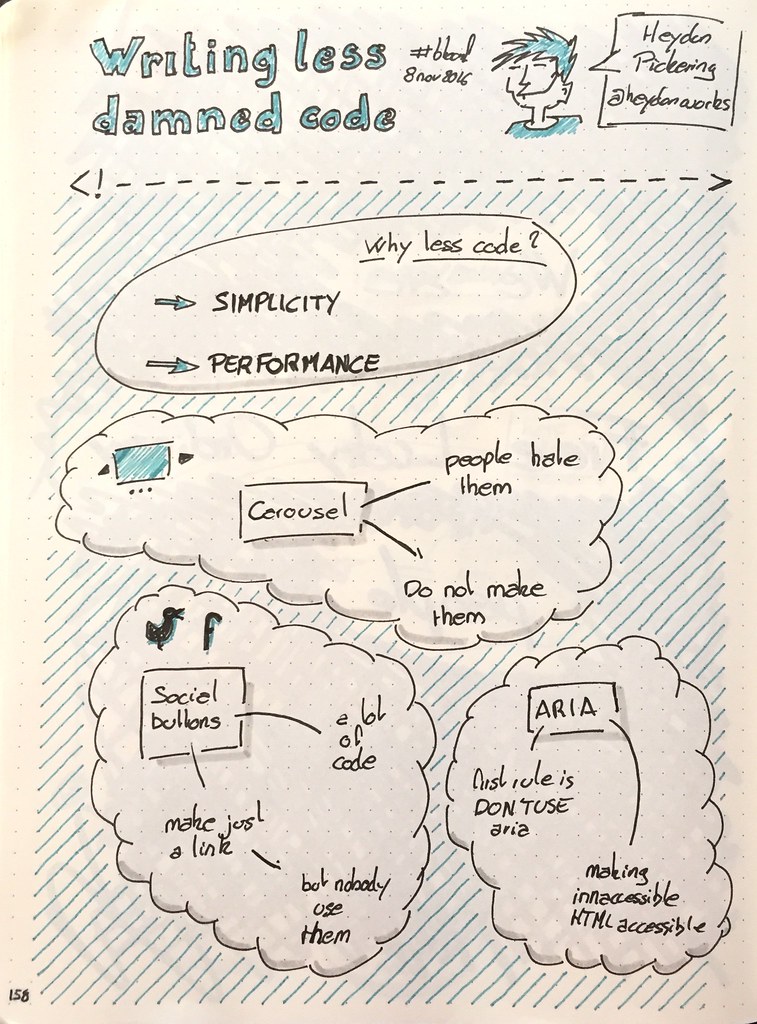 Writing less
damned code
8 nov 2016
Heydon
Pickering
@heydonworks
<! - - - - - - - - - - - - - - >
Why less code?
SIMPLICITY
PERFORMANCE
Carousel
people hate
them
Do not make
them
Social
buttons
a lot
of
code
make just
a link
but nobody
use
them
ARIA
first rule is
DON'T USE
aria
making
innaccessible
HTML accessible
158